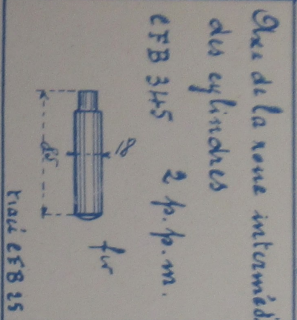 Axe de la roue interméd
des cylindres
CFB 345 2 p.p.m.
18
85
fer
tracé CFB 25